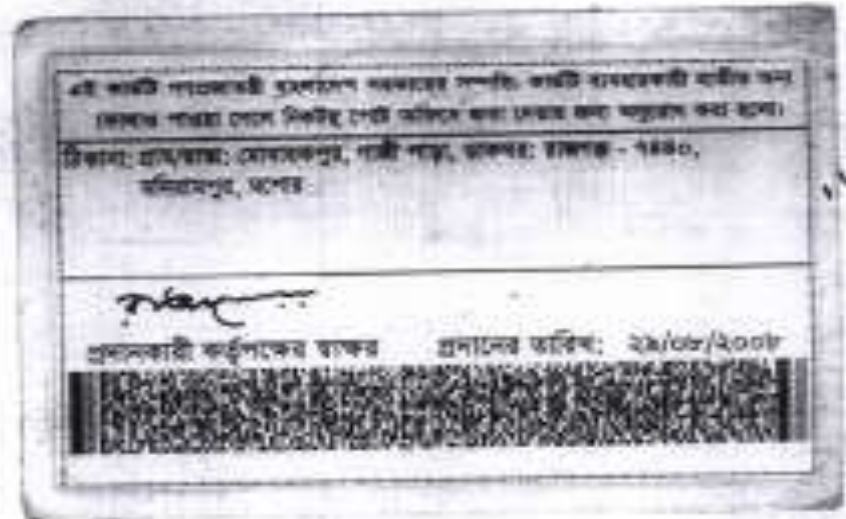 এই কার্ডটি গণপ্রজাতন্ত্রী বাংলাদেশ সরকারের সম্পত্তি। কার্ডটি ব্যবহারকারী ব্যতীত অন্য
কোথাও পাওয়া গেলে নিকটস্থ পোস্ট অফিসে জমা দেবার জন্য অনুরোধ করা হলো।
ঠিকানা: গ্রাম/রাস্তা: মোবারকপুর, গাজী পাড়া, ডাকঘর: রাজগঞ্জ - ৭৪৪০,
মনিরামপুর, যশোর
প্রদানকারী কর্তৃপক্ষের স্বাক্ষর প্রদানের তারিখ: ২৯/০৮/২০০৮